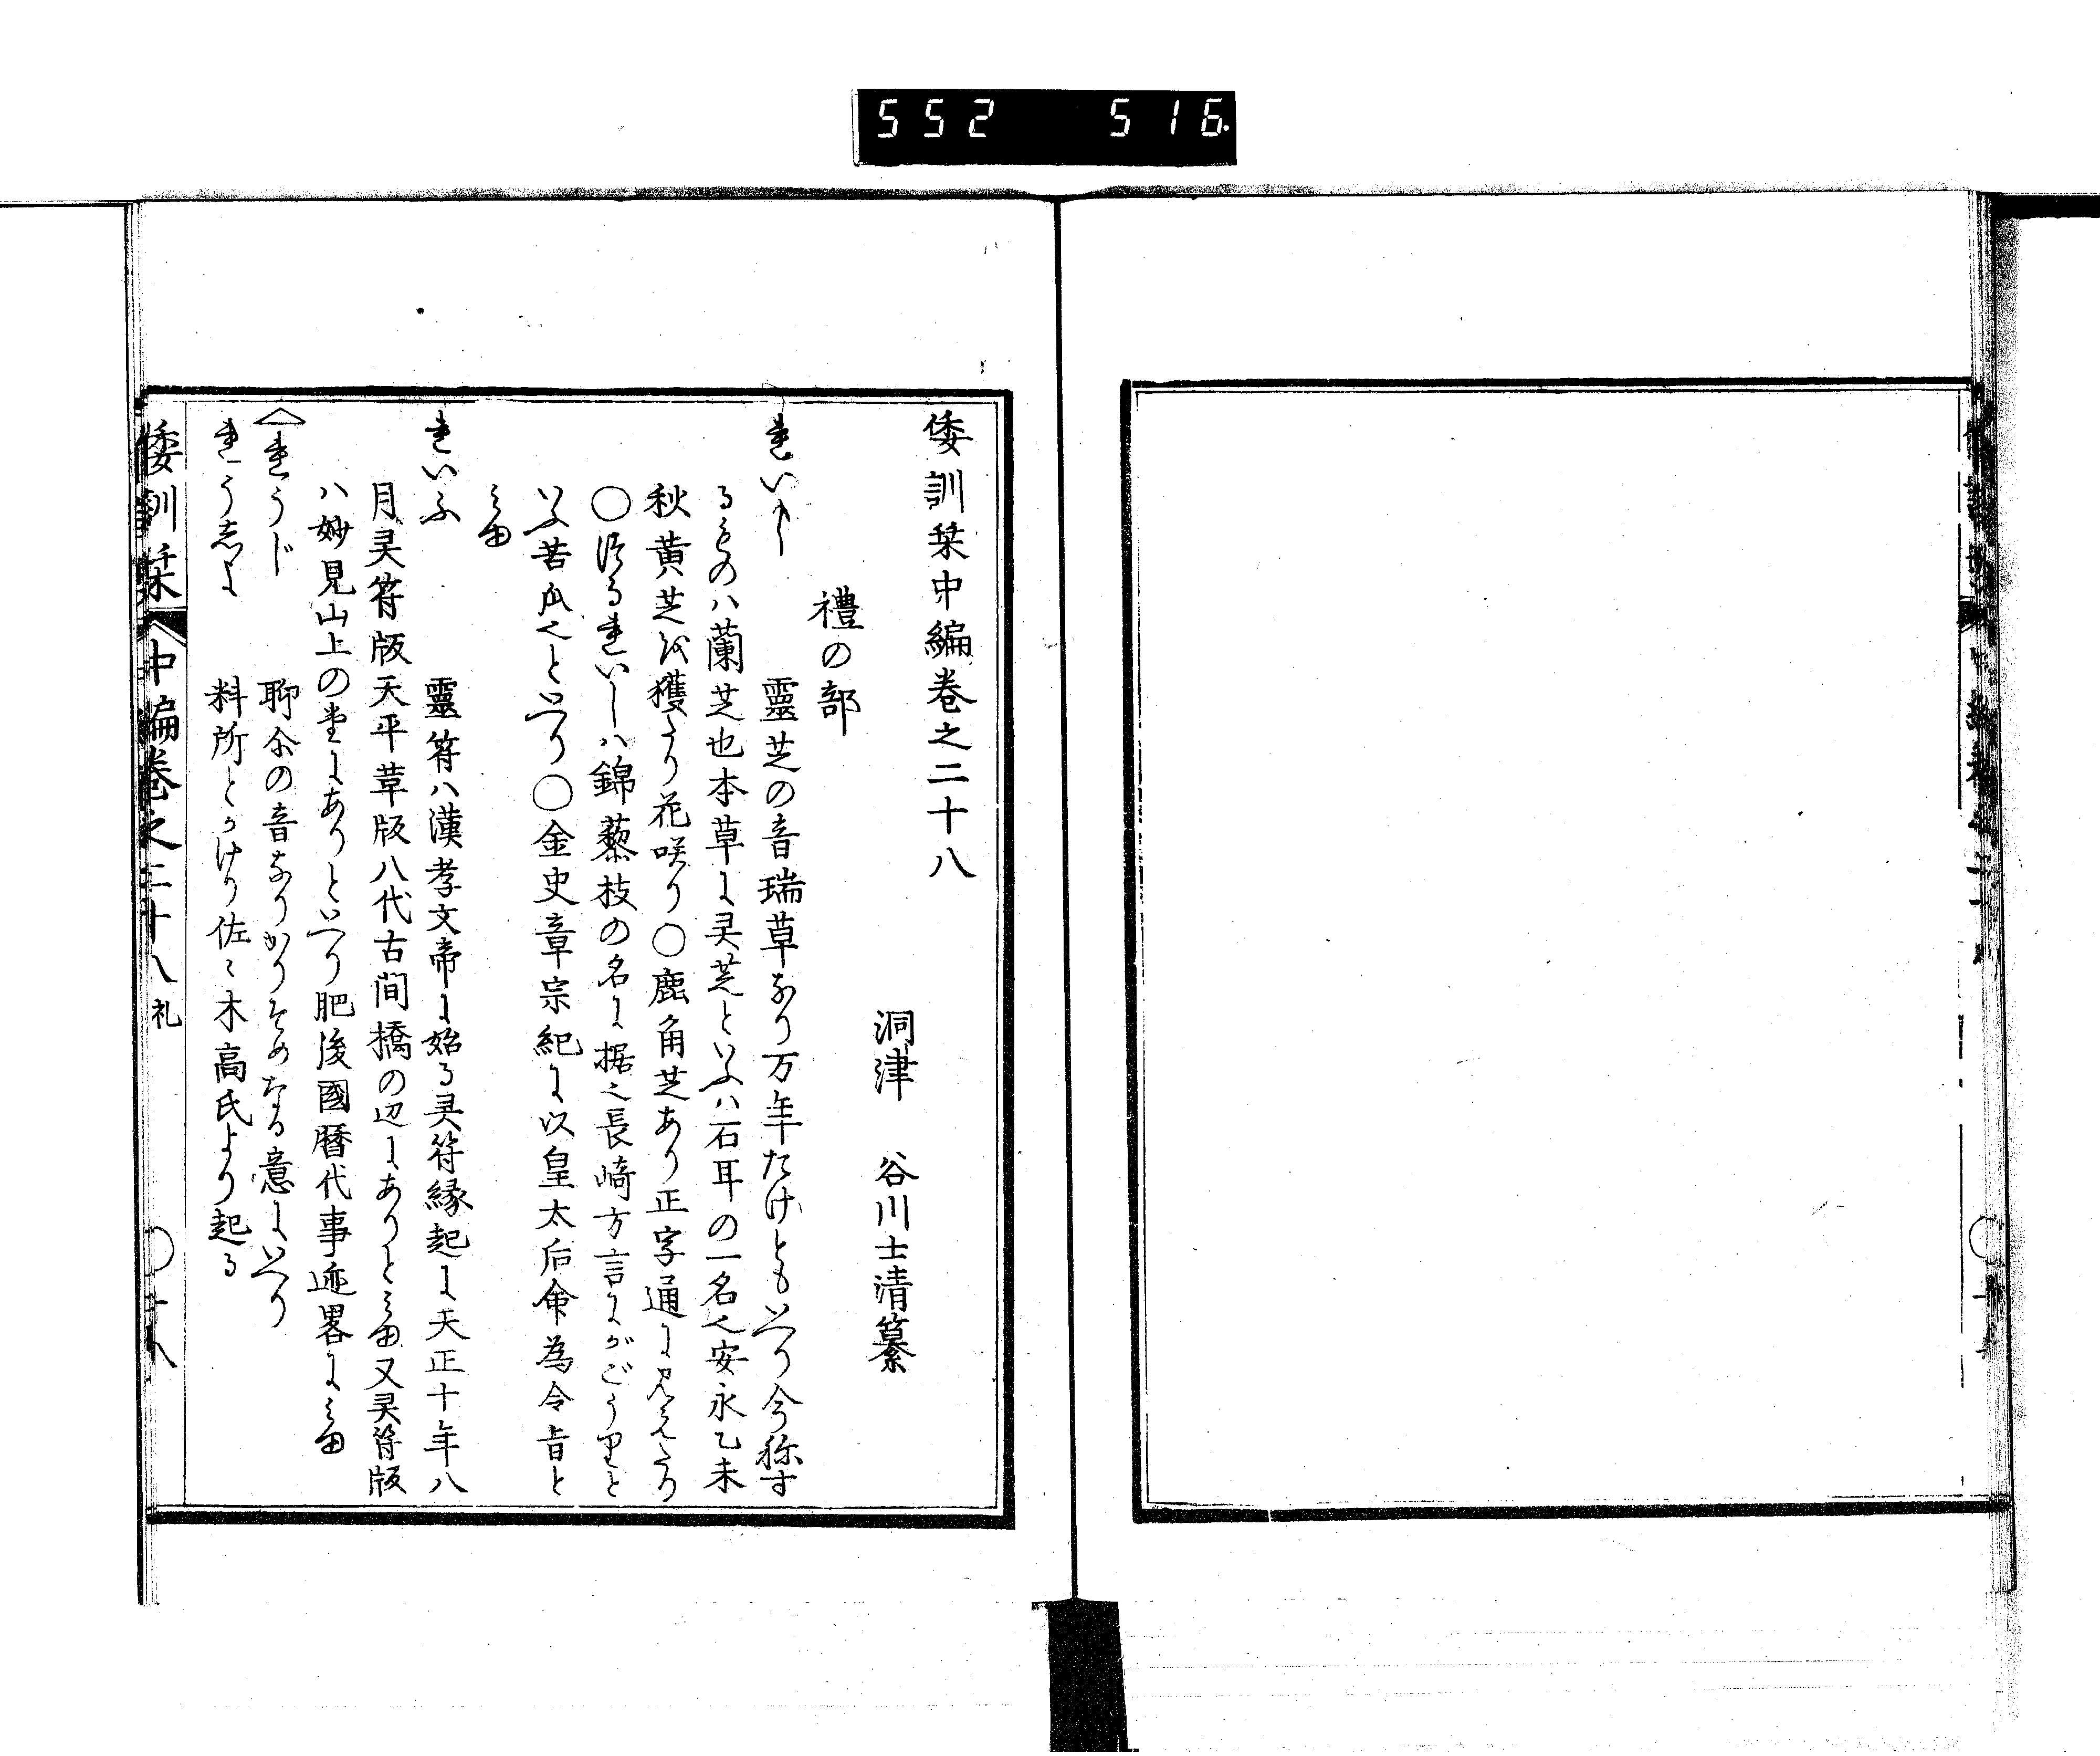 552 516
倭訓栞中編巻之二十八
洞津 谷川士清纂
禮の部
れいし 靈芝の音瑞草なり万年たけともいへり今称す
るものハ蘭芝也本草に灵芝といふハ石耳の一名也安永乙未
秋黄芝を獲たり花咲り〇鹿角芝あり正字通に見えたり
〇つるれいしハ錦藜枝の名に据之長崎方言にがごうりと
いふ苦瓜也といへり〇金史章宗紀に以皇太后命為令旨と
みゆ
れいふ 靈符ハ漢孝文帝に始る灵符縁起に天正十年八
月灵符版天平草版八代古間橋の辺にありとみゆ又灵符版
ハ妙見山上の堂にありといへり肥後國暦代事迹畧にみゆ
れうじ 聊尒の音なりかりそめなる意にいへり
れうしよ 料所とかけり佐々木高氏より起る
倭訓栞 中編巻之二十八 礼 〇十八